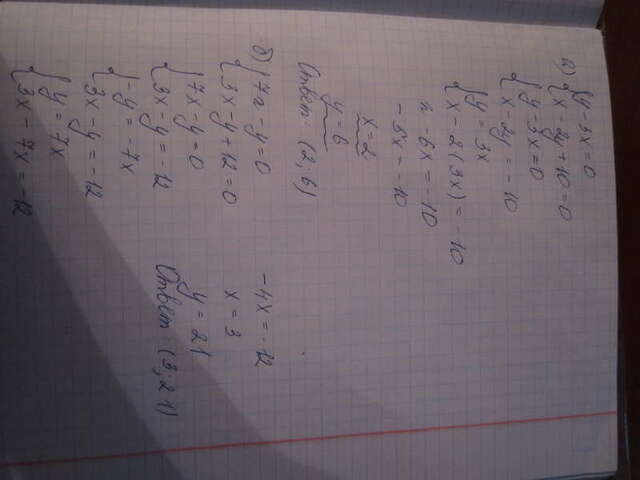 а) { y - 3x = 0
x - 2y + 10 = 0
{ y - 3x = 0
x - 2y = -10
{ y = 3x
x - 2(3x) = -10
x - 6x = -10
-5x = -10
x = 2
y = 6
Ответ (2; 6)
б) { 7x - y = 0
3x - y + 12 = 0
{ 7x - y = 0
3x - y = -12
{ -y = -7x
3x - y = -12
{ y = 7x
3x - 7x = -12
-4x = -12
x = 3
y = 21
Ответ (3; 21)